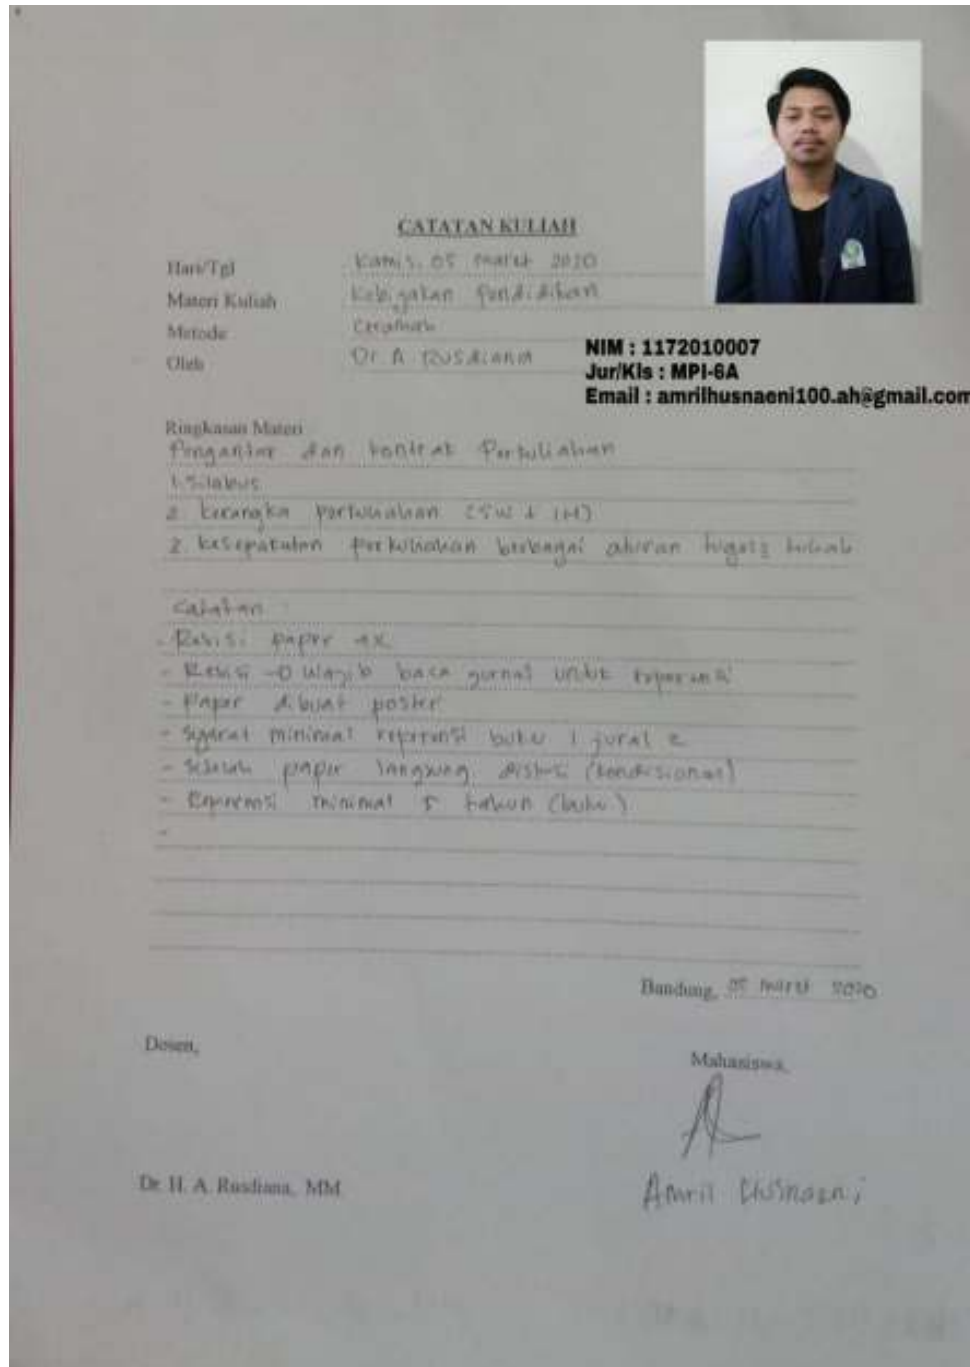 CATATAN KULIAH
Hari/Tgl Kamis, 05 maret 2020
Materi Kuliah Kebijakan Pendidikan
Metode Ceramah
Oleh Dr. A Rusdiana
NIM : 1172010007
Jur/Kls : MPI-6A
Email : amrilhusnaeni100.ah@gmail.com
Ringkasan Materi
Pengantar dan kontrak Perkuliahan
1. Silabus
2. kerangka perkuliahan (5W + 1H)
2. kesepakatan perkuliahan berbagai aturan tugas2 kuliah
Catatan :
- Revisi paper 4x
- Revisi → Wajib baca jurnal untuk
- Paper dibuat poster
- Syarat minimal buku 1 jural 2
- Setelah paper langsung (kondisional)
- minimal 5 tahun (buku)
-
Bandung, 05 maret 2020
Dosen,
Mahasiswa,
Dr. H. A. Rusdiana, MM
Amril Husnaeni